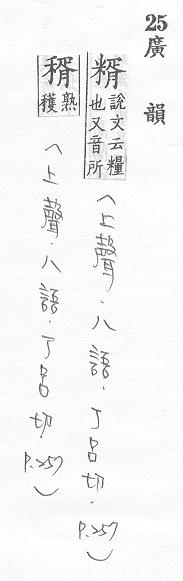 25廣韻
糈說文云糧也又音所(上聲.八語.丁呂切.P.257)
稰熟穫(上聲.八語.丁呂切.P.257)